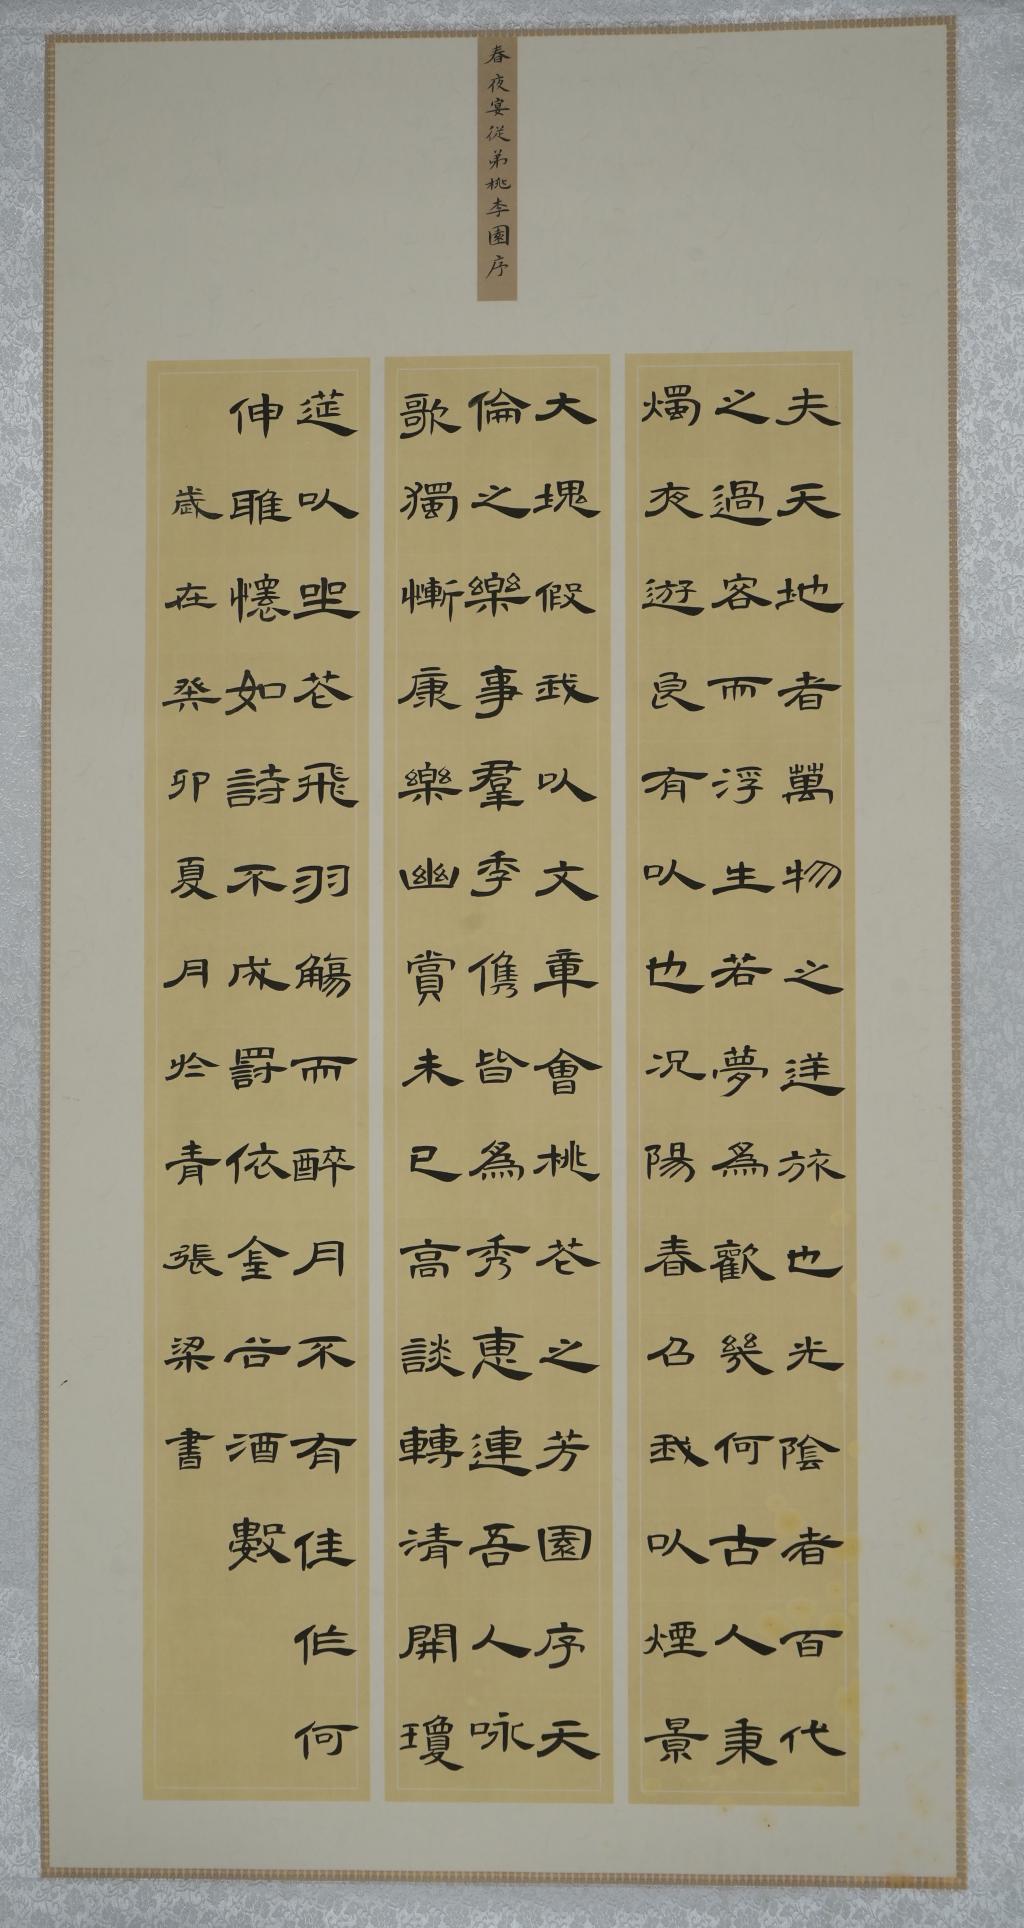 春夜宴從弟桃李園序
夫天地者萬物之逆旅也光陰者百代
之過客而浮生若夢為歡幾何古人秉
燭夜遊良有以也況陽春召我以煙景
大塊假我以文章會桃花之芳園序天
倫之樂事羣季儁皆為秀惠連吾人咏
歌獨慚康樂幽賞未已高談轉清開瓊
筵以坐花飛羽觴而醉月不有佳作何
伸雅懷如詩不成罰依金谷酒數
歲在癸卯夏月於青張梁書